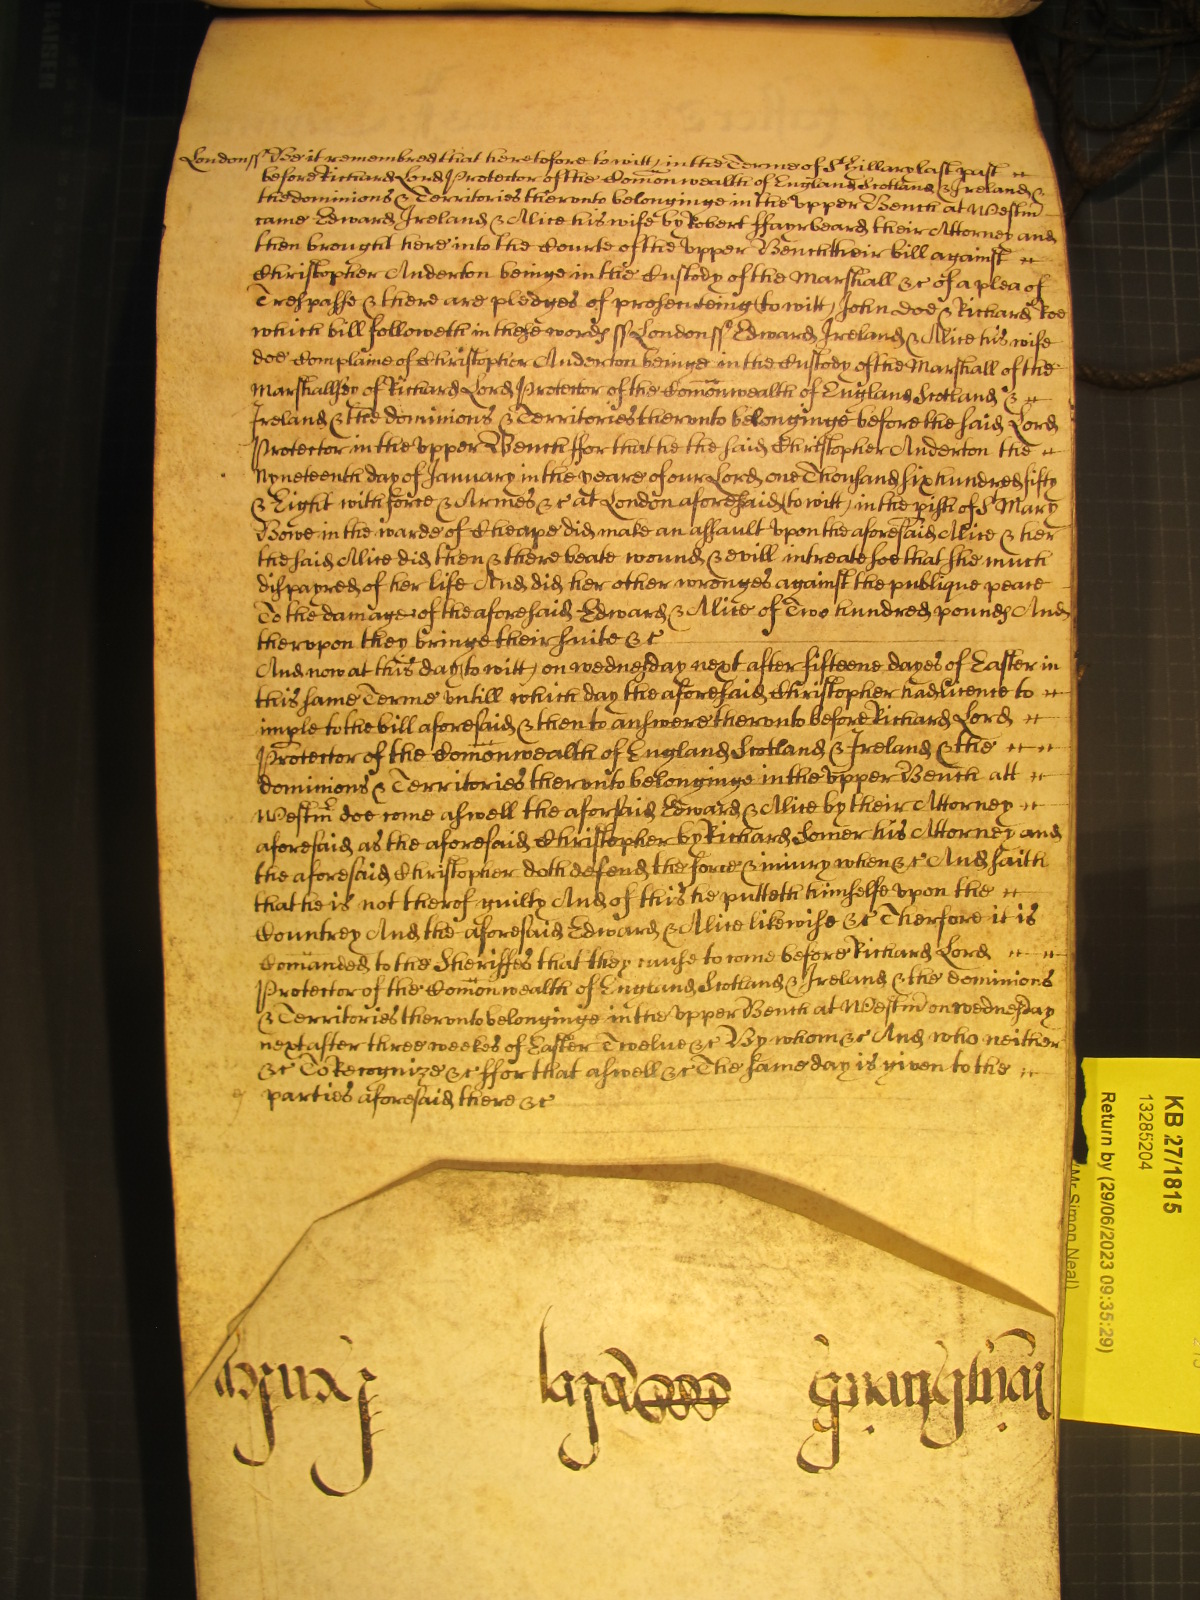 Londonss Be it remembred that heretofore (to witt) in the Terme of St Hillary last past
before Richard Lord Protector of the Com̄onwealth of England Scotland & Ireland &
the dominions & Territories therevnto belonginge in the vpper Bench at Westm̄
came Edward Ireland & Alice his wife by Robert ffayrbeard their Attorney and
then brought here into the Courte of the vpper Bench their bill against
Christopher Anderton beinge in the Custody of the Marshall &c of a plea of
Trespasse & there are pledges of prosecuteing (to witt) John Doe & Richard Roe
which bill followeth in these words ss Londonss Edward Ireland & Alice his wife
doe Complaine of Christopher Anderton beinge in the Custody of the Marshall of the
Marshallsey of Richard Lord Protector of the Com̄onwealth of England Scotland &
Ireland & the dominions & Territories therevnto belonginge before the said Lord
Protector in the vpper Bench ffor that he the said Christopher Anderton the
Nyneteenth day of January in the yeare of our Lord one Thousand six hundred fifty
& Eight with force & Armes &c at London aforesaid (to witt) in the pish of St Mary
Bowe in the warde of Cheape did make an assault vpon the aforesaid Alice & her
the said Alice did then & there beate wound & evill intreate soe that she much
dispayred of her life And did her other wronges against the publique peace
To the damage of the aforesaid Edward & Alice of Two hundred pounds And
thervpon they bringe their suite &c
And now at this day (to witt) on wednesday next after fifteene dayes of Easter in
this same Terme vntill which day the aforesaid Christopher had licence to
imple to the bill aforesaid & then to answere therevnto before Richard Lord
Protector of the Com̄onwealth of England Scotland & Ireland & the
dominions & Territories therevnto belonginge in the vpper Bench att
Westm̄ doe come aswell the aforsaid Edward & Alice by their Attorney
aforesaid as the aforesaid Christopher by Richard Somer his Attorney and
the aforesaid Christopher doth defend the force & iniury when &c And saith
that he is not therof guilty And of this he putteth himselfe vpon the
Countrey And the aforesaid Edward & Alice likewise &c Therfore it is
Com̄anded to the Sheriffes that they cause to come before Richard Lord
Protector of the Com̄onwealth of England Scotland & Ireland & the dominions
& Territories therevnto belonginge in the vpper Bench at Westm̄ on wednesday
next after three weekes of Easter Twelue &c By whom &c And who neither
&c To Recognize &c ffor that aswell &c The same day is given to the
parties aforesaid there &c
KB 27/1815
13285204
Return by (29/06/2023 09:35:29)
(Mr Simon Neal)